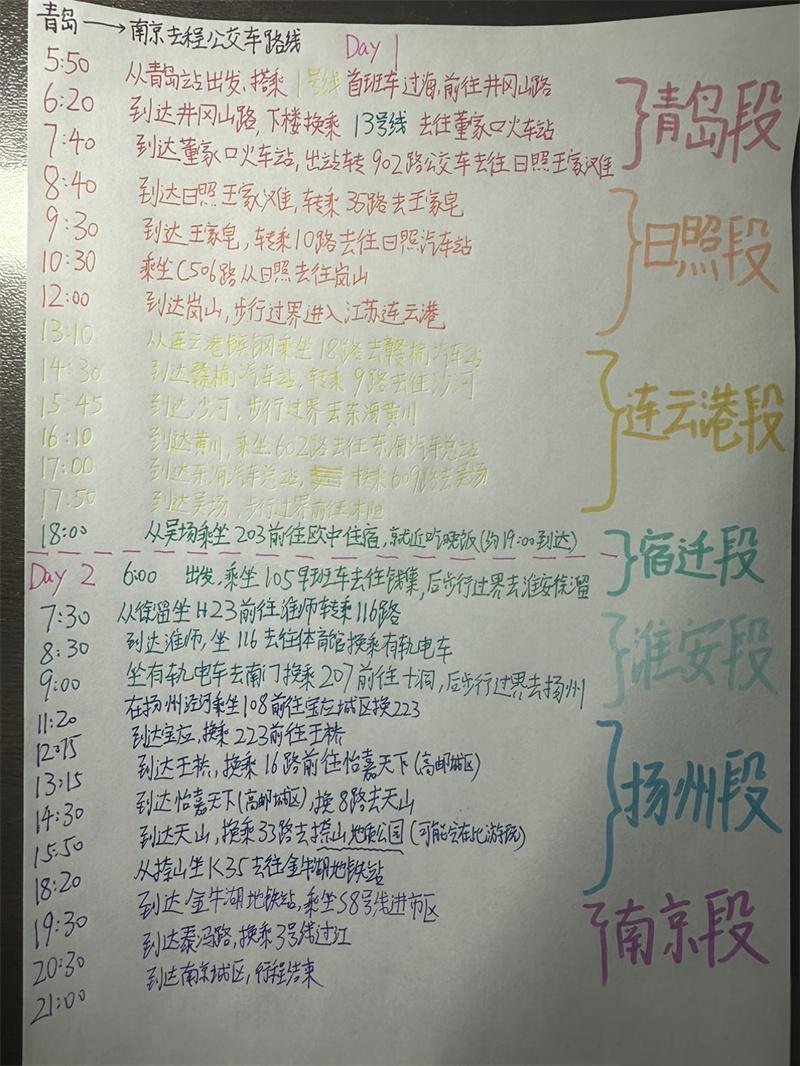 青岛→南京去程公交车路线
Day 1
5:50 从青岛站出发,搭乘1号线首班车过海,前往井冈山路
6:20 到达井冈山路,下楼换乘13号线去往董家口火车站
7:40 到达董家口火车站,出站转902路公交车去往日照王家滩
青岛段
8:40 到达日照王家滩,转乘36路去王家皂
9:30 到达王家皂,转乘10路去往日照汽车站
10:30 乘坐C506路从日照去往岚山
12:00 到达岚山,步行过界进入江苏连云港
日照段
13:10 从连云港镔钢乘坐18路去赣榆汽车站
14:30 到达赣榆汽车站,转乘9路去往沙河
15:45 到达沙河,步行过界去东海黄川
16:10 到达黄川,乘坐602路去往东海汽车总站
17:00 到达东海汽车总站,换乘609路去吴场
17:50 到达吴场,步行过界前往
连云港段
18:00 从吴场乘坐203前往欧中住宿,就近吃晚饭(约19:00到达)
Day 2
6:00 出发,乘坐105早班车去往钱集,后步行过界去淮安徐溜
宿迁段
7:30 从徐溜坐H23前往淮师转乘116路
8:30 到达淮师,坐116去往体育馆换乘有轨电车
9:00 坐有轨电车去南门换乘207前往十洞,后步行过界去扬州
淮安段
11:20 在扬州泾河乘坐108前往宝应城区换223
12:15 到达宝应,换乘223前往王桥
13:15 到达王桥,换乘16路前往怡嘉天下(高邮城区)
14:30 到达怡嘉天下(高邮城区),换8路去天山
15:50 到达天山,换乘33路去捺山地质公园(可能会在此游玩)
18:20 从捺山坐K35去往金牛湖地铁站
扬州段
19:30 到达金牛湖地铁站,乘坐S8号线进市区
20:30 到达泰冯路,换乘3号线过江
21:00 到达南京城区,行程结束
南京段